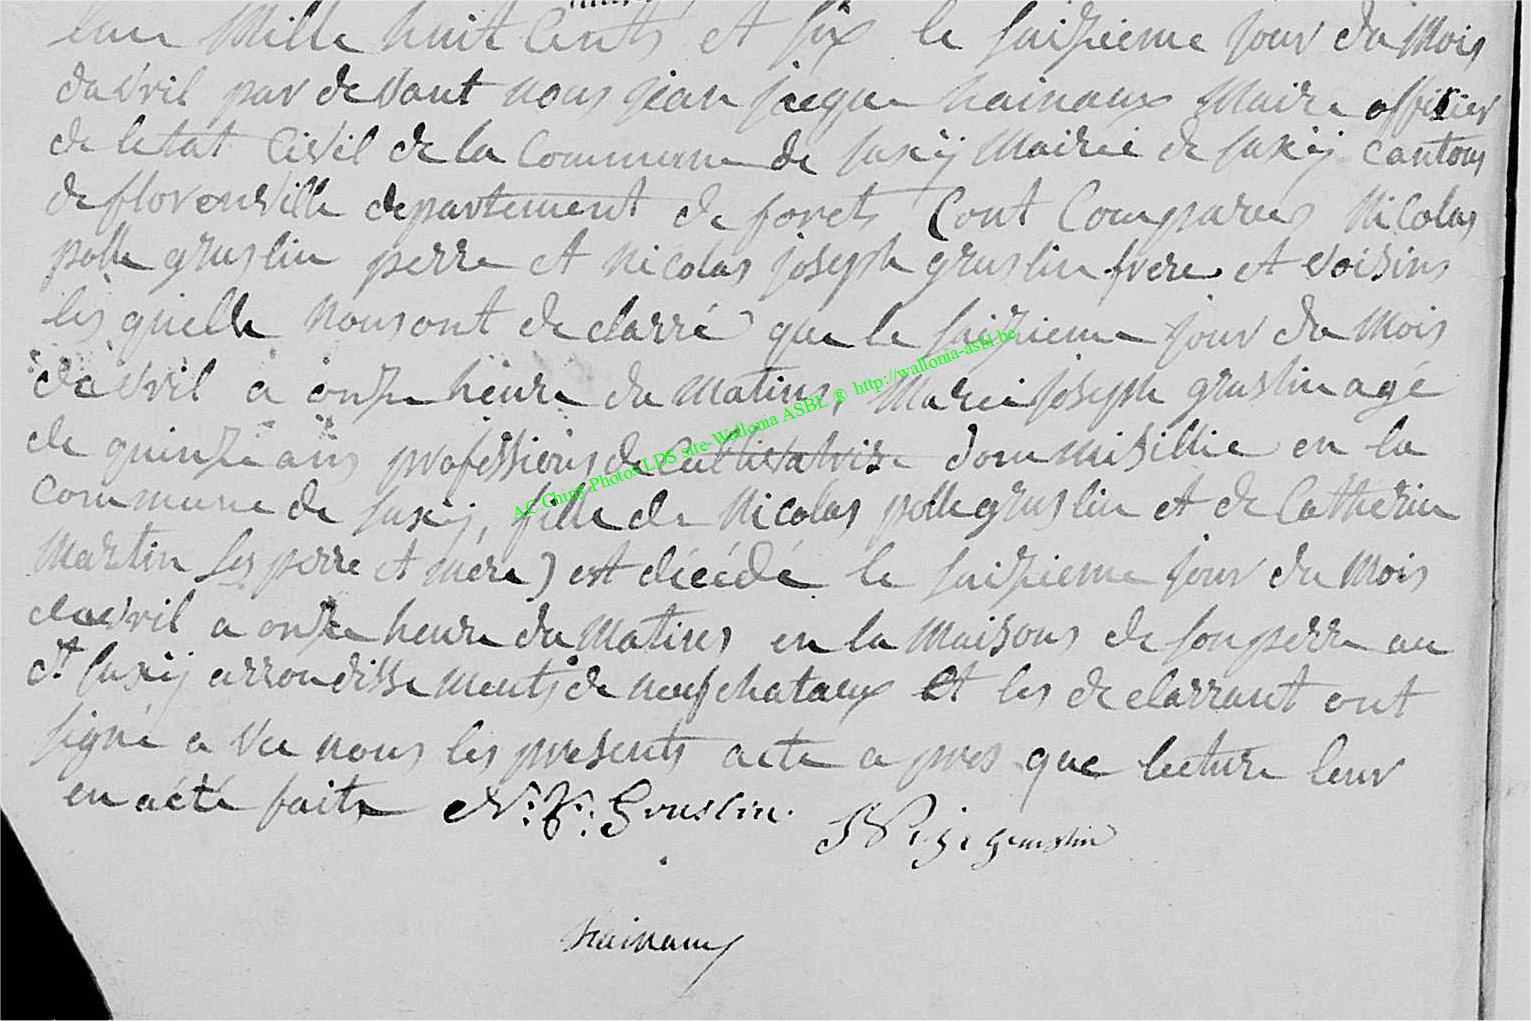 lan Mille huit Cents et six le saizieme jour du Mois
davril par devant nous jean jacque hainaux Maire officier
de letat Civil de la Commune de suxÿ Mairie de suxÿ cantons
de florenville departement de forets sont Comparus Nicolas
polle gruslin perre et Nicolas joseph gruslin frere et voisins
les quelle nous ont declarré que le saizieme jour du Mois
davril a onze heure du Matins, Marie joseph gruslin agé
de quinze ans professions de Cultivatrise dommisillie en la
Commune de suxÿ, fille de Nicolas polle gruslin et de Catherine
Martin ses perre et mére) est décédé le saizieme jour du Mois
davril a onze heure du Matines en la Maisons de son perre au
dt suxÿ arrondissements de neufchataux Et les declarrant ont
signé avec nous les presents acte apres que lecture leur
en a été faite N: P: Gruslin. N. j. gruslin
hainaux
AC Chiny Photos LDS site-Wallonia ASBL @ http://wallonia-asbl.be